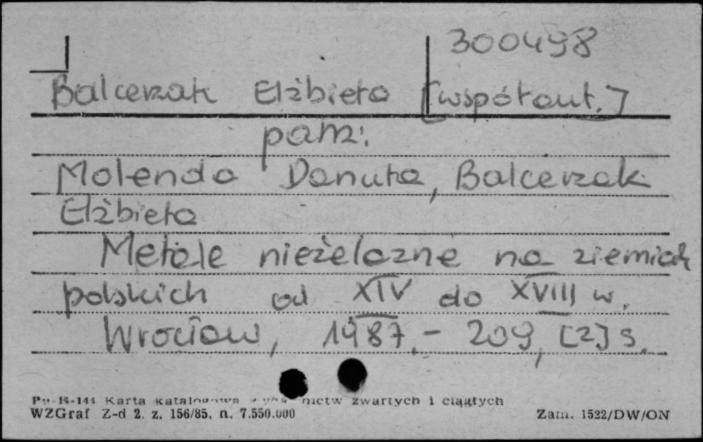 300498
Balcerzak Elżbieta [współaut.]
patrz:
Molenda Danuta, Balcerzak
Elżbieta
Metale nieżelazne na ziemiach
polskich od XIV do XVIII w.
Wrocław, 1987. - 209, [2] s.
Pu-K-144 Karta katalogowa wydawnictw zwartych i ciągłych
WZGraf Z-d 2. z. 156/85. n. 7.550.000 Zam. 1522/DW/ON